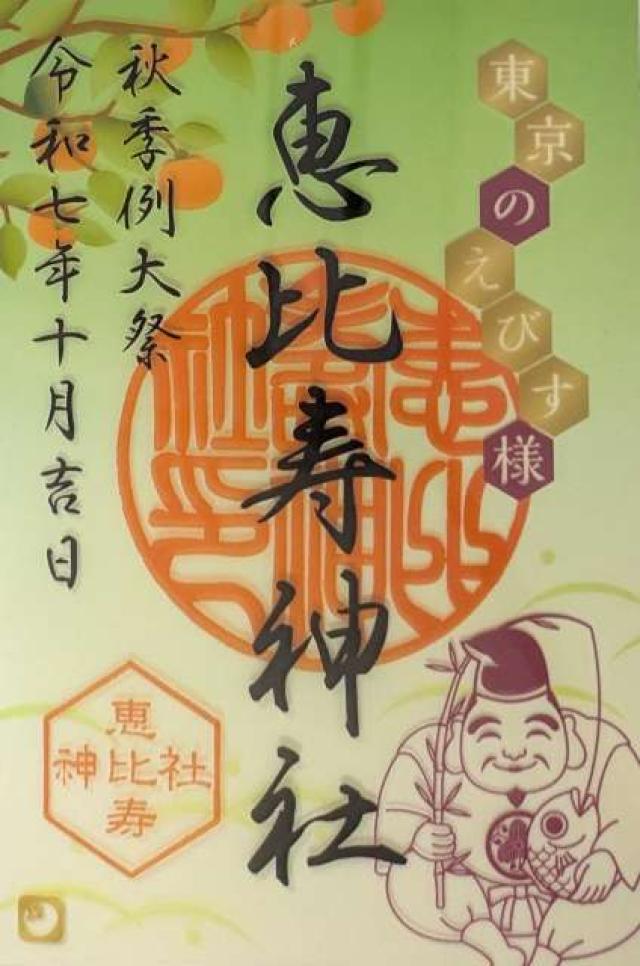 東京のえびす様
恵比寿神社
秋季例大祭
令和七年十月吉日
恵比寿神社印
恵比寿
神社